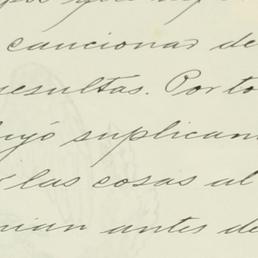 cancionar de
resultas. Por to
luyó suplican
las cosas al
nian antes de